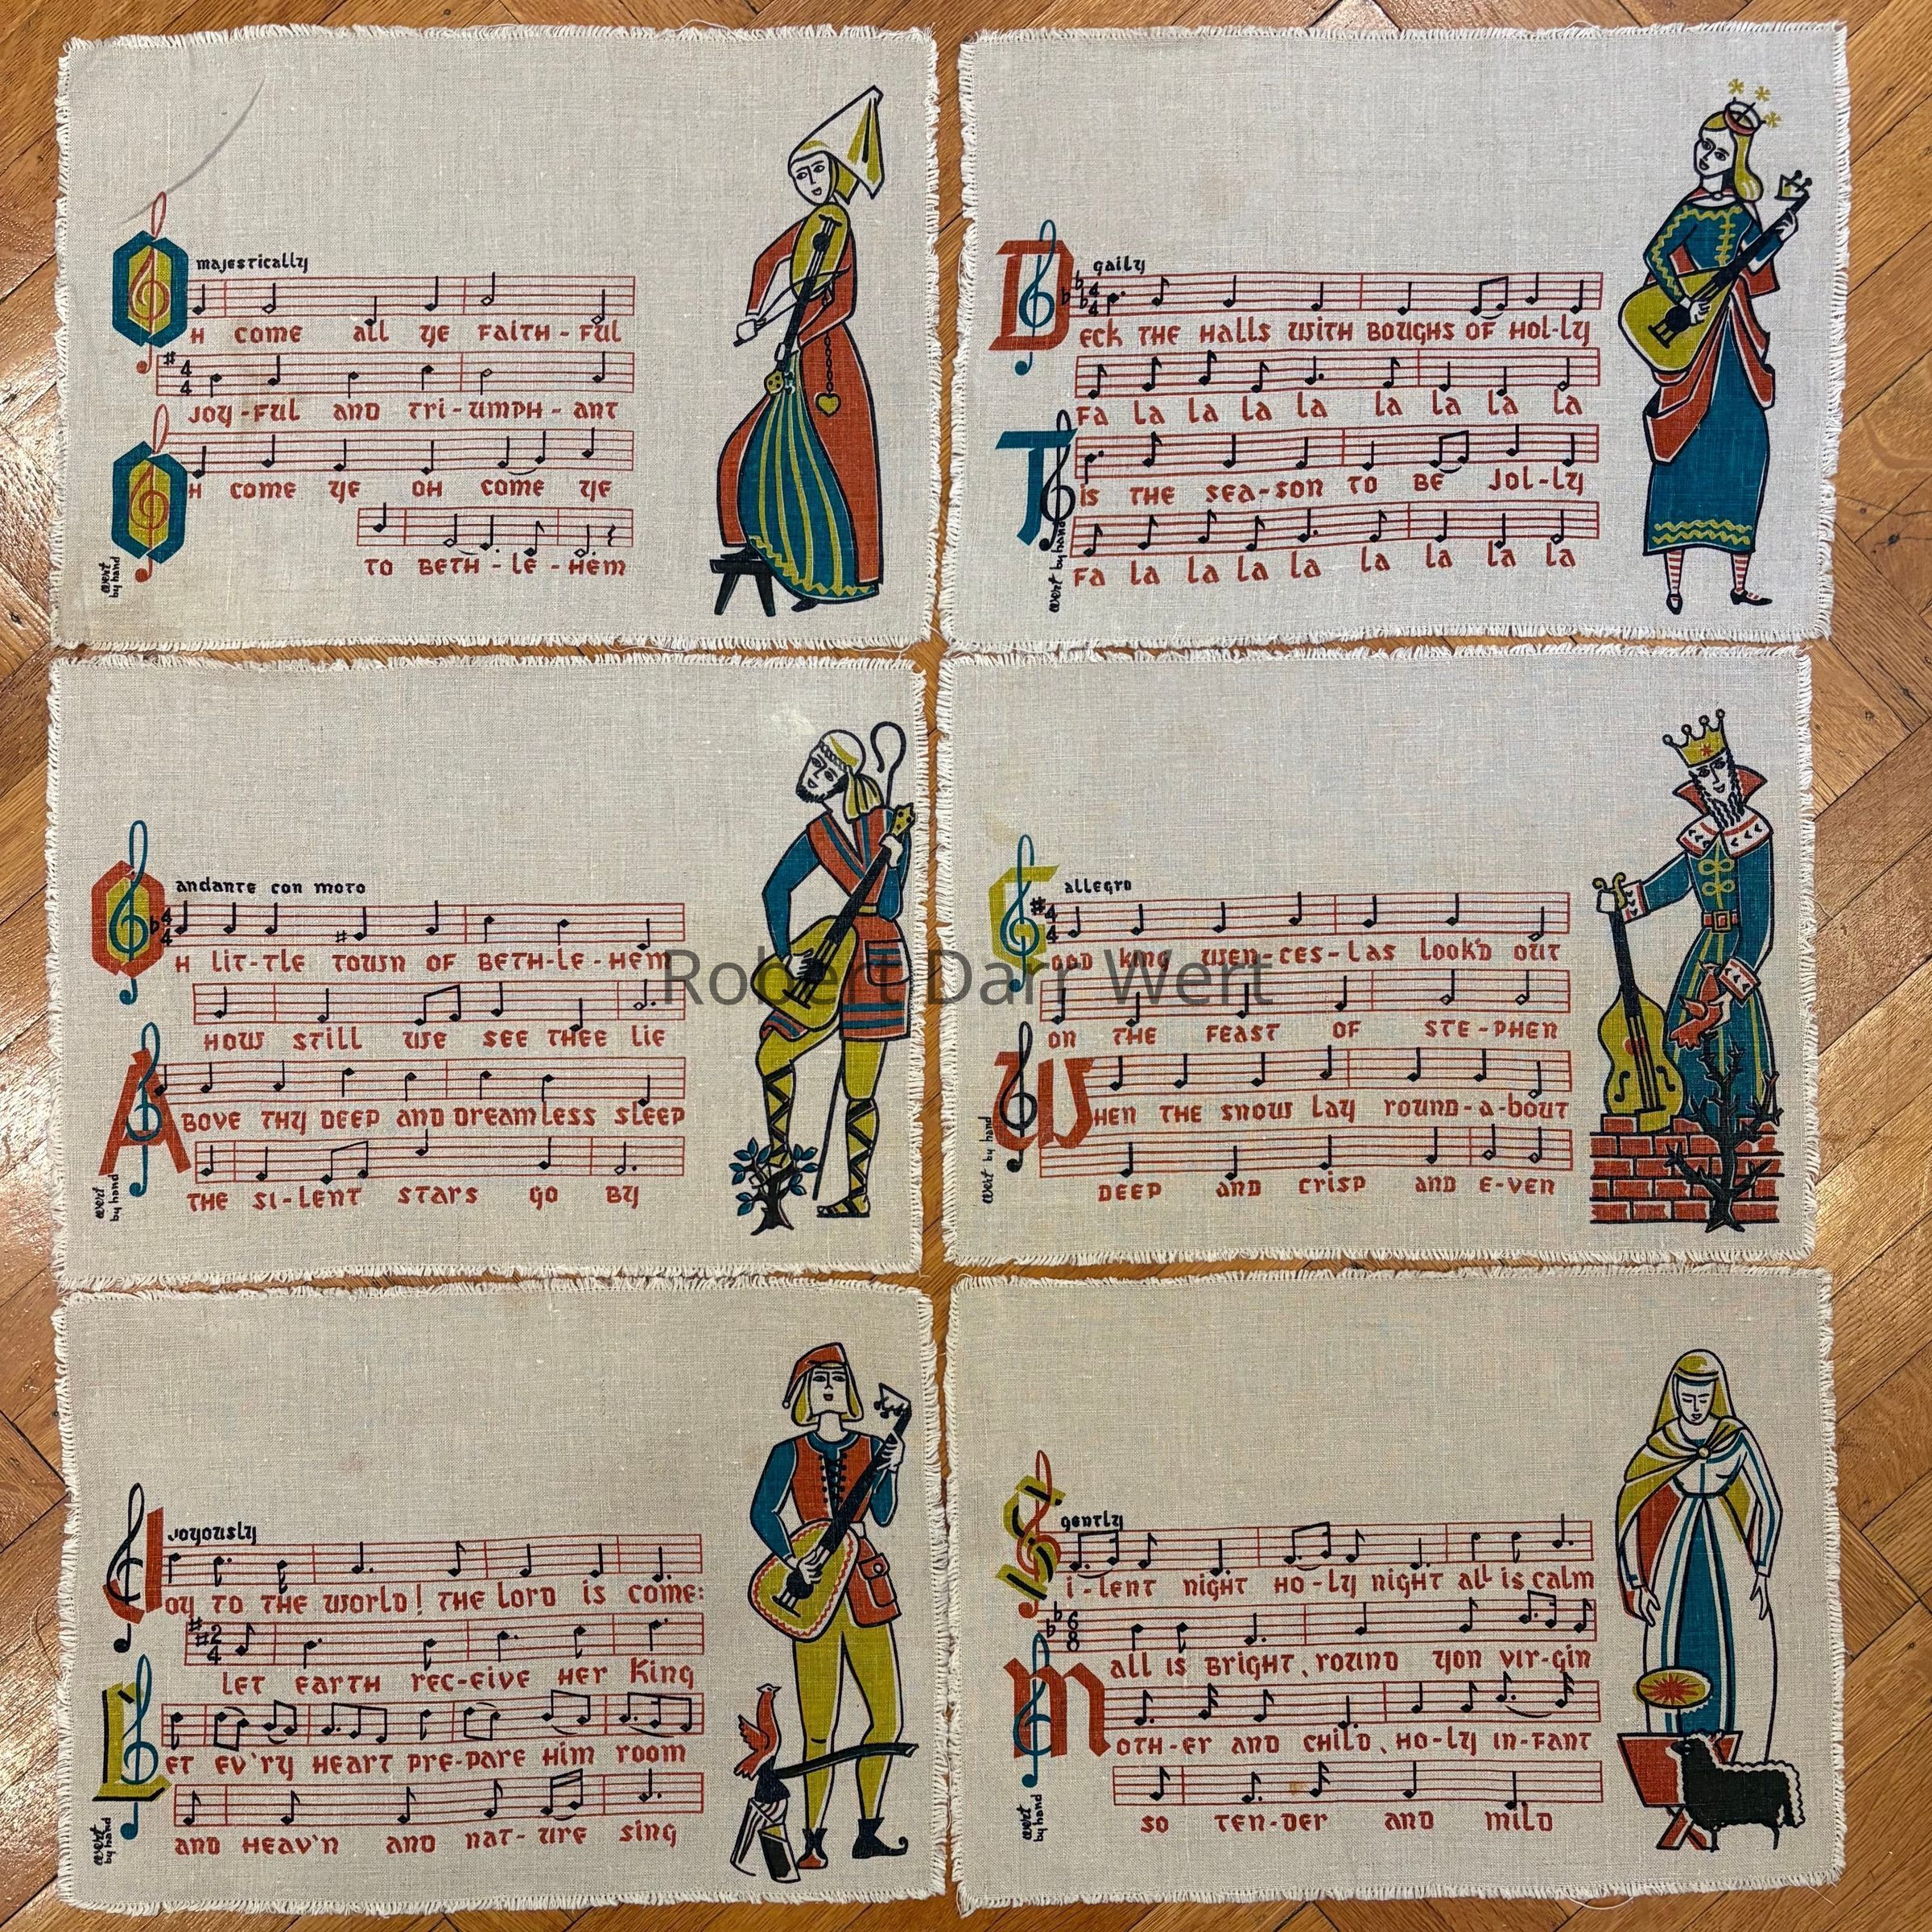 majestically
OH COME all YE FAITH - FUL
4
4
JOY - FUL AND TRI - UMPH - ANT
OH COME YE OH COME YE
TO BETH - LE - HEM
wert
by hand
gaily
4
4
DECK THE HALLS WITH BOUGHS OF HOL - LY
FA LA LA LA LA LA LA LA LA
TIS THE SEA - SON TO BE JOL - LY
FA LA LA LA LA LA LA LA LA
wert by hand
andante con moto
4
4
OH LIT - TLE TOWN OF BETH - LE - HEM
HOW STILL WE SEE THEE LIE
ABOVE THY DEEP AND DREAMLESS SLEEP
THE SI - LENT STARS GO BY
wert
by hand
allegro
4
4
GOOD KING WEN - CES - LAS LOOK'D OUT
ON THE FEAST OF STE - PHEN
WHEN THE SNOW LAY ROUND - A - BOUT
DEEP AND CRISP AND E - VEN
wert by hand
Robert Darr Wert
joyously
JOY TO THE WORLD! THE LORD IS COME:
2
4
LET EARTH REC - EIVE HER KING
LET EV'RY HEART PRE - PARE HIM ROOM
AND HEAV'N AND NAT - URE SING
wert
by hand
gently
SI - LENT NIGHT HO - LY NIGHT ALL IS CALM
6
8
ALL IS BRIGHT, ROUND YON VIR - GIN
MOTH - ER AND CHILD, HO - LY IN - FANT
SO TEN - DER AND MILD
wert
by hand